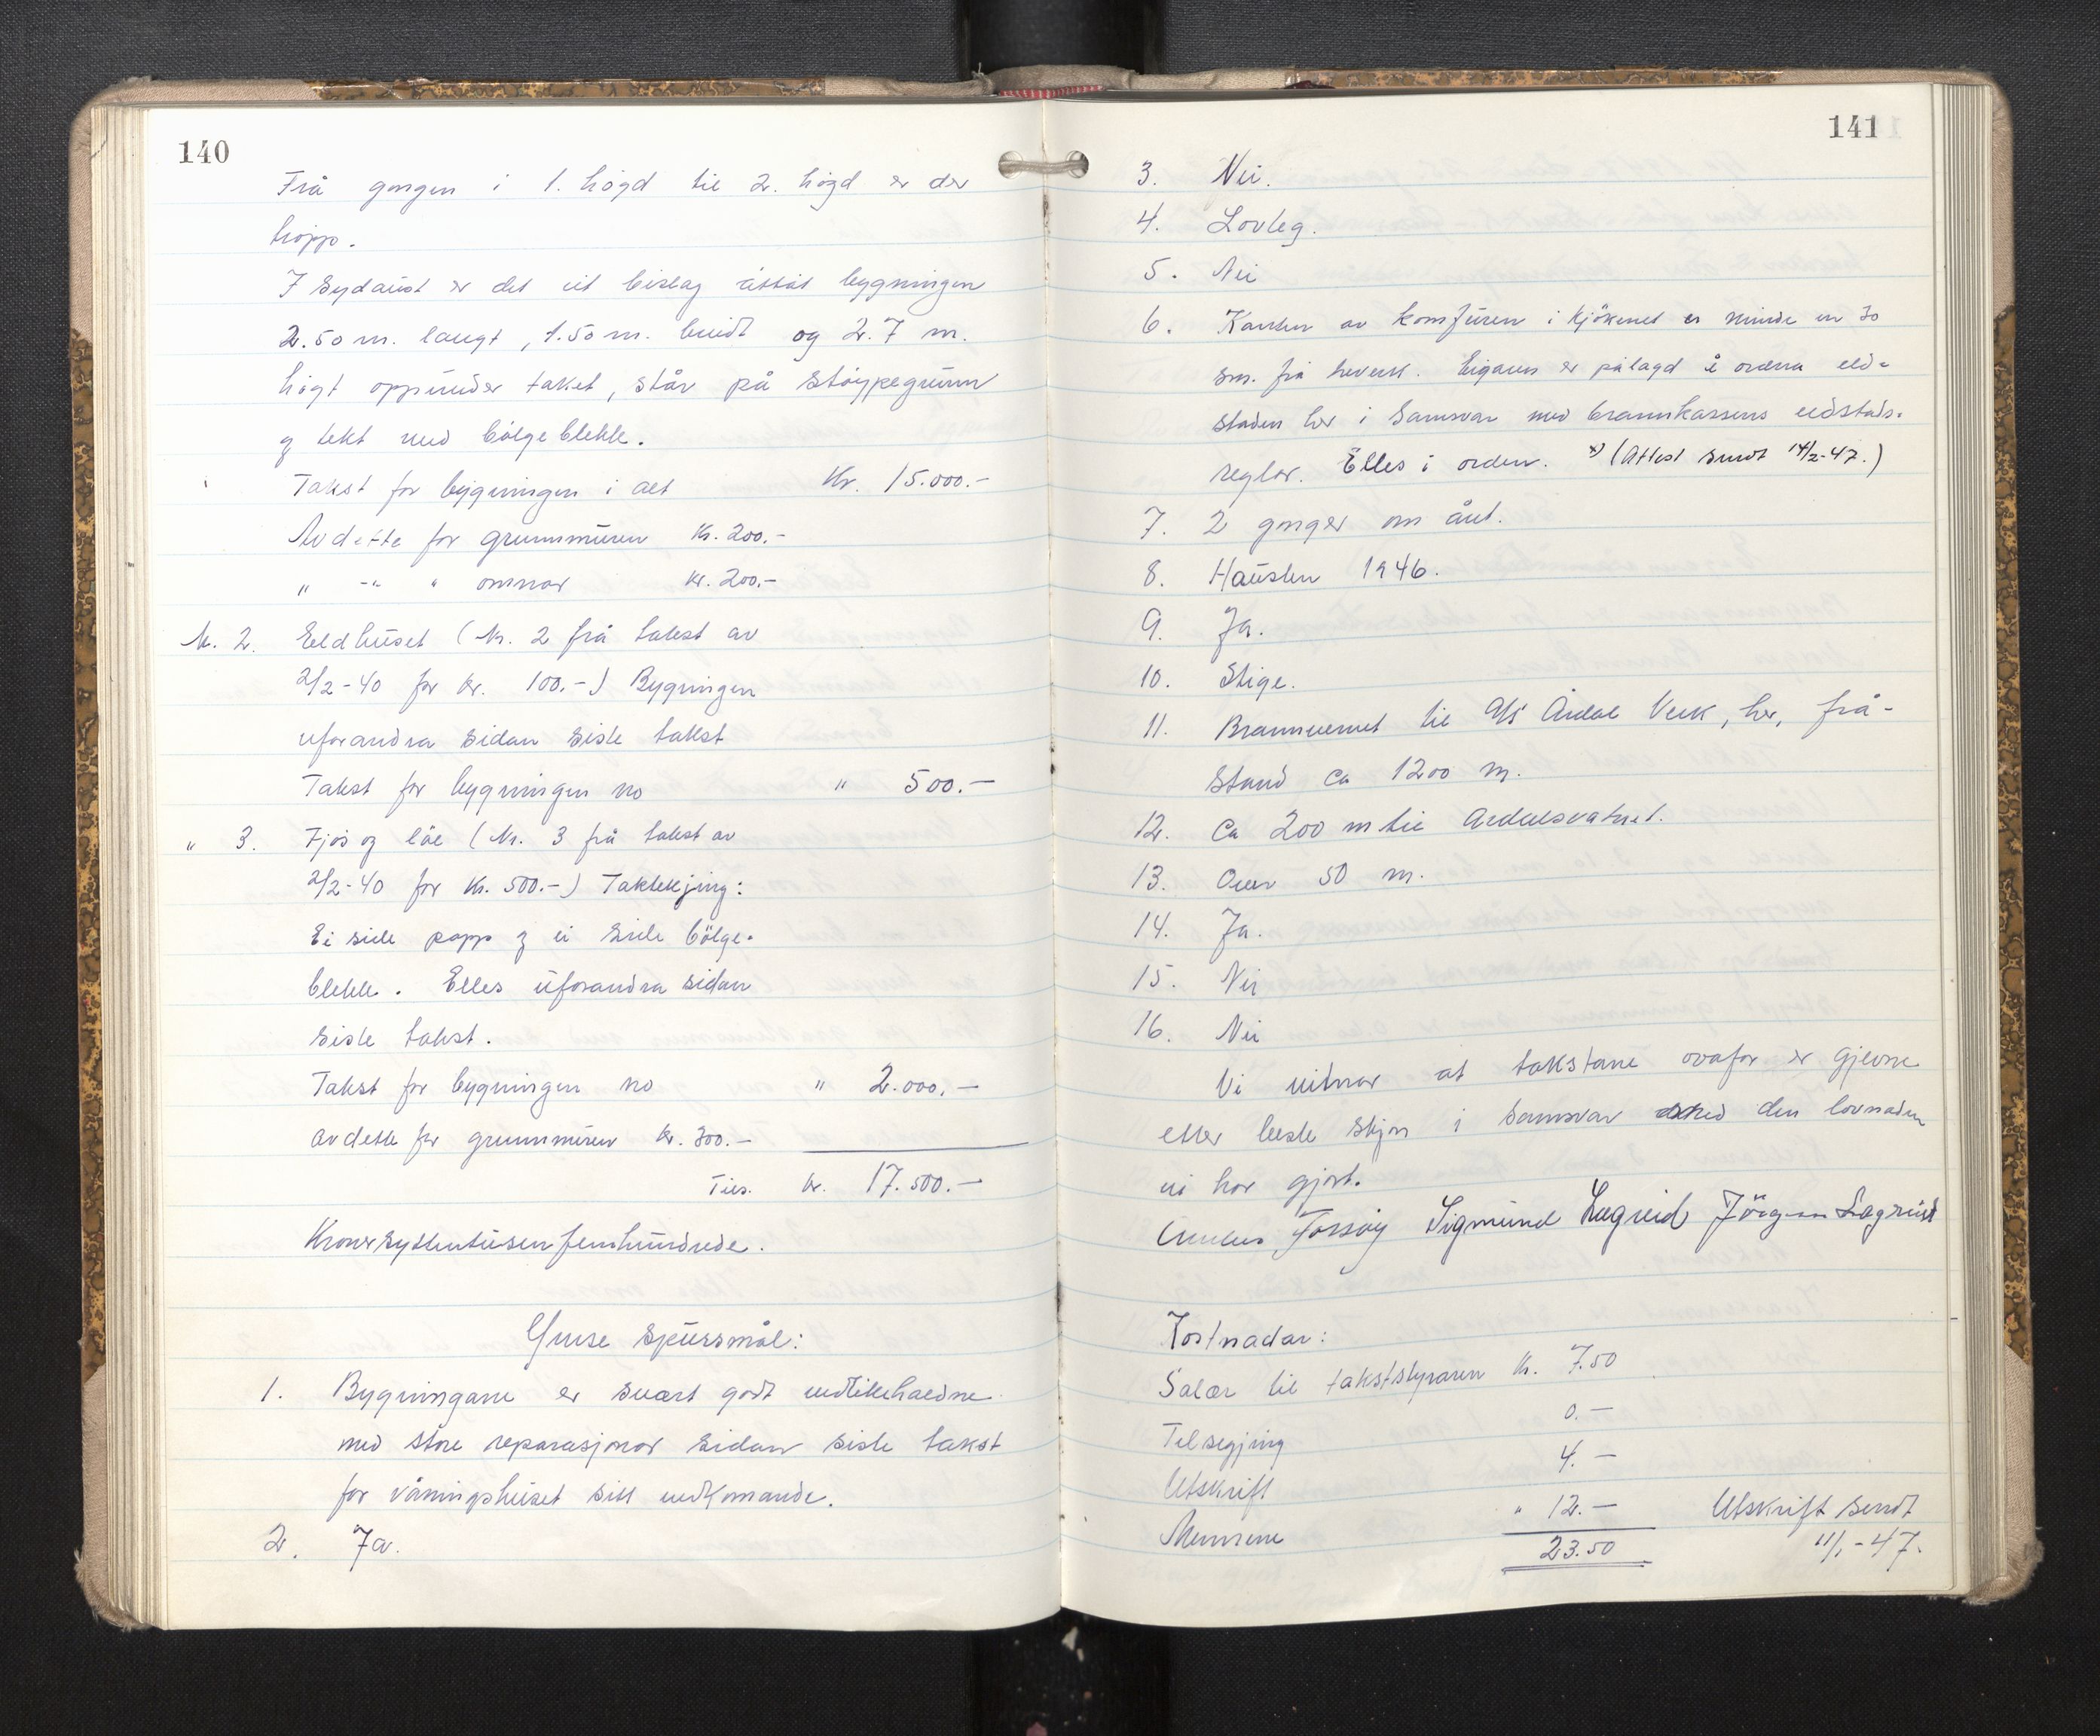 140
Frå gongen i 1. høgd til 2. høgd er der
tropp.
I Sydaust er det eit bislag åttåt bygningen
2.50 m. langt, 1.50 m. breidt og 2.7 m.
høgt oppunder taket, står på støypegrunn
og tekt med bölgeblekk.
Takst for bygningen i alt Kr. 15.000.-
Av dette for grunnmuren Kr. 200.-
" -"- " omnar kr. 200.-
Nr. 2. Eeldhuset (Nr. 2 frå takst av
2/2-40 for kr. 100.-) Bygningen
uforandra sidan siste takst
Takst for bygningen no " 500.-
" 3. Fjøs og låe (Nr. 3 frå takst av
2/2-40 for Kr. 500.-) Taktekjing:
Ei side papp og ei side bölge-
blekk. Elles uforandra sidan
siste takst.
Takst for bygningen no " 2.000.-
av dette for grunnmuren kr. 300.-
Tils. kr. 17.500.-
Kroner syttentusenfemhundrede.
Ymse Spursmål:
1. Bygningane er svært godt vedlikehaldne
med store reparasjonar sidan siste takst
for våningshuset sitt vedkomande.
2. Ja.
141
3. Nei.
4. Lovleg.
5. Nei
6. Kanten av komfuren i kjøkenet er minde en 30
sm. frå treverk. Eigaren er pålagd å ordna eld-
staden her i Samsvar med brannkassens eldstads-
reglar. Elles i orden. x) (Attest sendt 14/2-47.)
7. 2 gonger om året.
8. Hausten 1946.
9. Ja.
10. Stige.
11. Brannvernet til A/S Årdal Verk, her, frå-
stand ca 1200 m.
12. Ca 200 m til Årdalsvatnet.
13. Over 50 m.
14. Ja.
15. Nei
16. Nei
Vi vitnar at takstane ovafor er gjevne
etter beste skjøn i samsvar med den lovnaden
vi har gjort.
Torsøy Sigmund Lægreid Jörgen Lægreid
Kostnadar:
Salær til takststyraren Kr. 7.50
Tilsegjing 0.-
Utskrift 4.-
Mennene " 12.-
23.50
Utskrift sendt
11/1-47.